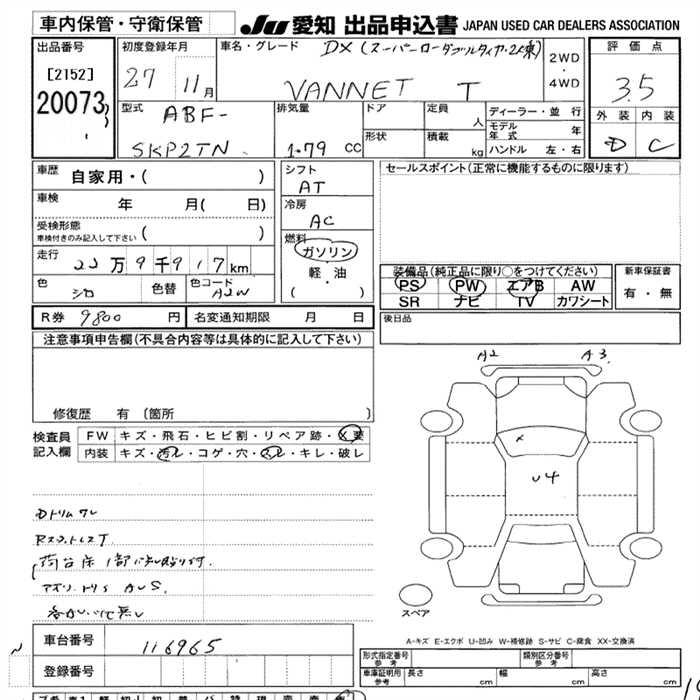 車内保管・守衛保管 JU 愛知 出品申込書 JAPAN USED CAR DEALERS ASSOCIATION
出品番号 初度登録年月 車名・グレード DX 2WD・4WD 評価点
[2152] 27 11月 VANNET T 3.5
20073 型式 ABF- 排気量 ドア 定員 人 ディーラー・並行 外装 内装
SKP2TN 1.79 CC 形状 積載 kg モデル年式 年 D C
ハンドル 左・右
車歴 自家用・( ) シフト AT セールスポイント(正常に機能するものに限ります)
車検 年 月( 日) 冷房 AC
受検形態 ( )
車検付きのみ記入して下さい
燃料 ガソリン
軽・油
( )
走行 22万9千917km
装備品(純正品に限り○をつけてください) 新車保証書
PS PW エアB AW 有・無
SR ナビ TV カワシート
色 シロ 色替 色コード A2W
R券 9800 円 名変通知期限 月 日 後日品
注意事項申告欄(不具合内容等は具体的に記入して下さい)
修復歴 有 〔箇所 〕
A2 A3
検査員記入欄 FW キズ・飛石・ヒビ割・リペア跡・X要
内装 キズ・汚レ・コゲ・穴・スレ・キレ・破レ
U4
スペア
車台番号 116965
登録番号
A-キズ E-エクボ U-凹み W-補修跡 S-サビ C-腐食 XX-交換済
形式指定番号 参考 類別区分番号 参考
車庫証明用 参考 長さ cm 幅 cm 高さ cm